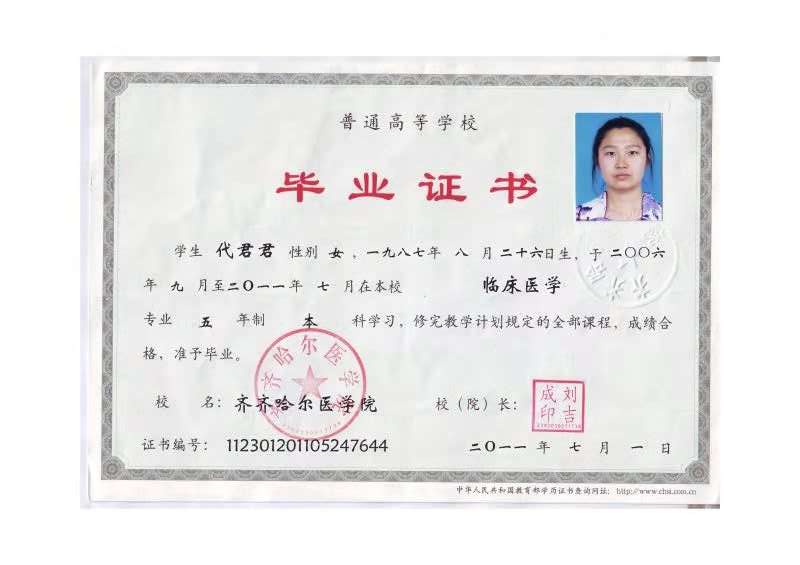 普通高等学校
毕业证书
学生 代君君 性别 女，一九八七年 八 月 二十六日生，于 二〇〇六
年 九 月至二〇一一年 七 月在本校 临床医学
专业 五 年制 本 科学习，修完教学计划规定的全部课程，成绩合
格，准予毕业。
齐齐哈尔医学院
校 名：齐齐哈尔医学院 校（院）长：
刘吉成印
证书编号：112301201105247644 二〇一一 年 七 月 一 日
中华人民共和国教育部学历证书查询网址：http://www.chsi.com.cn